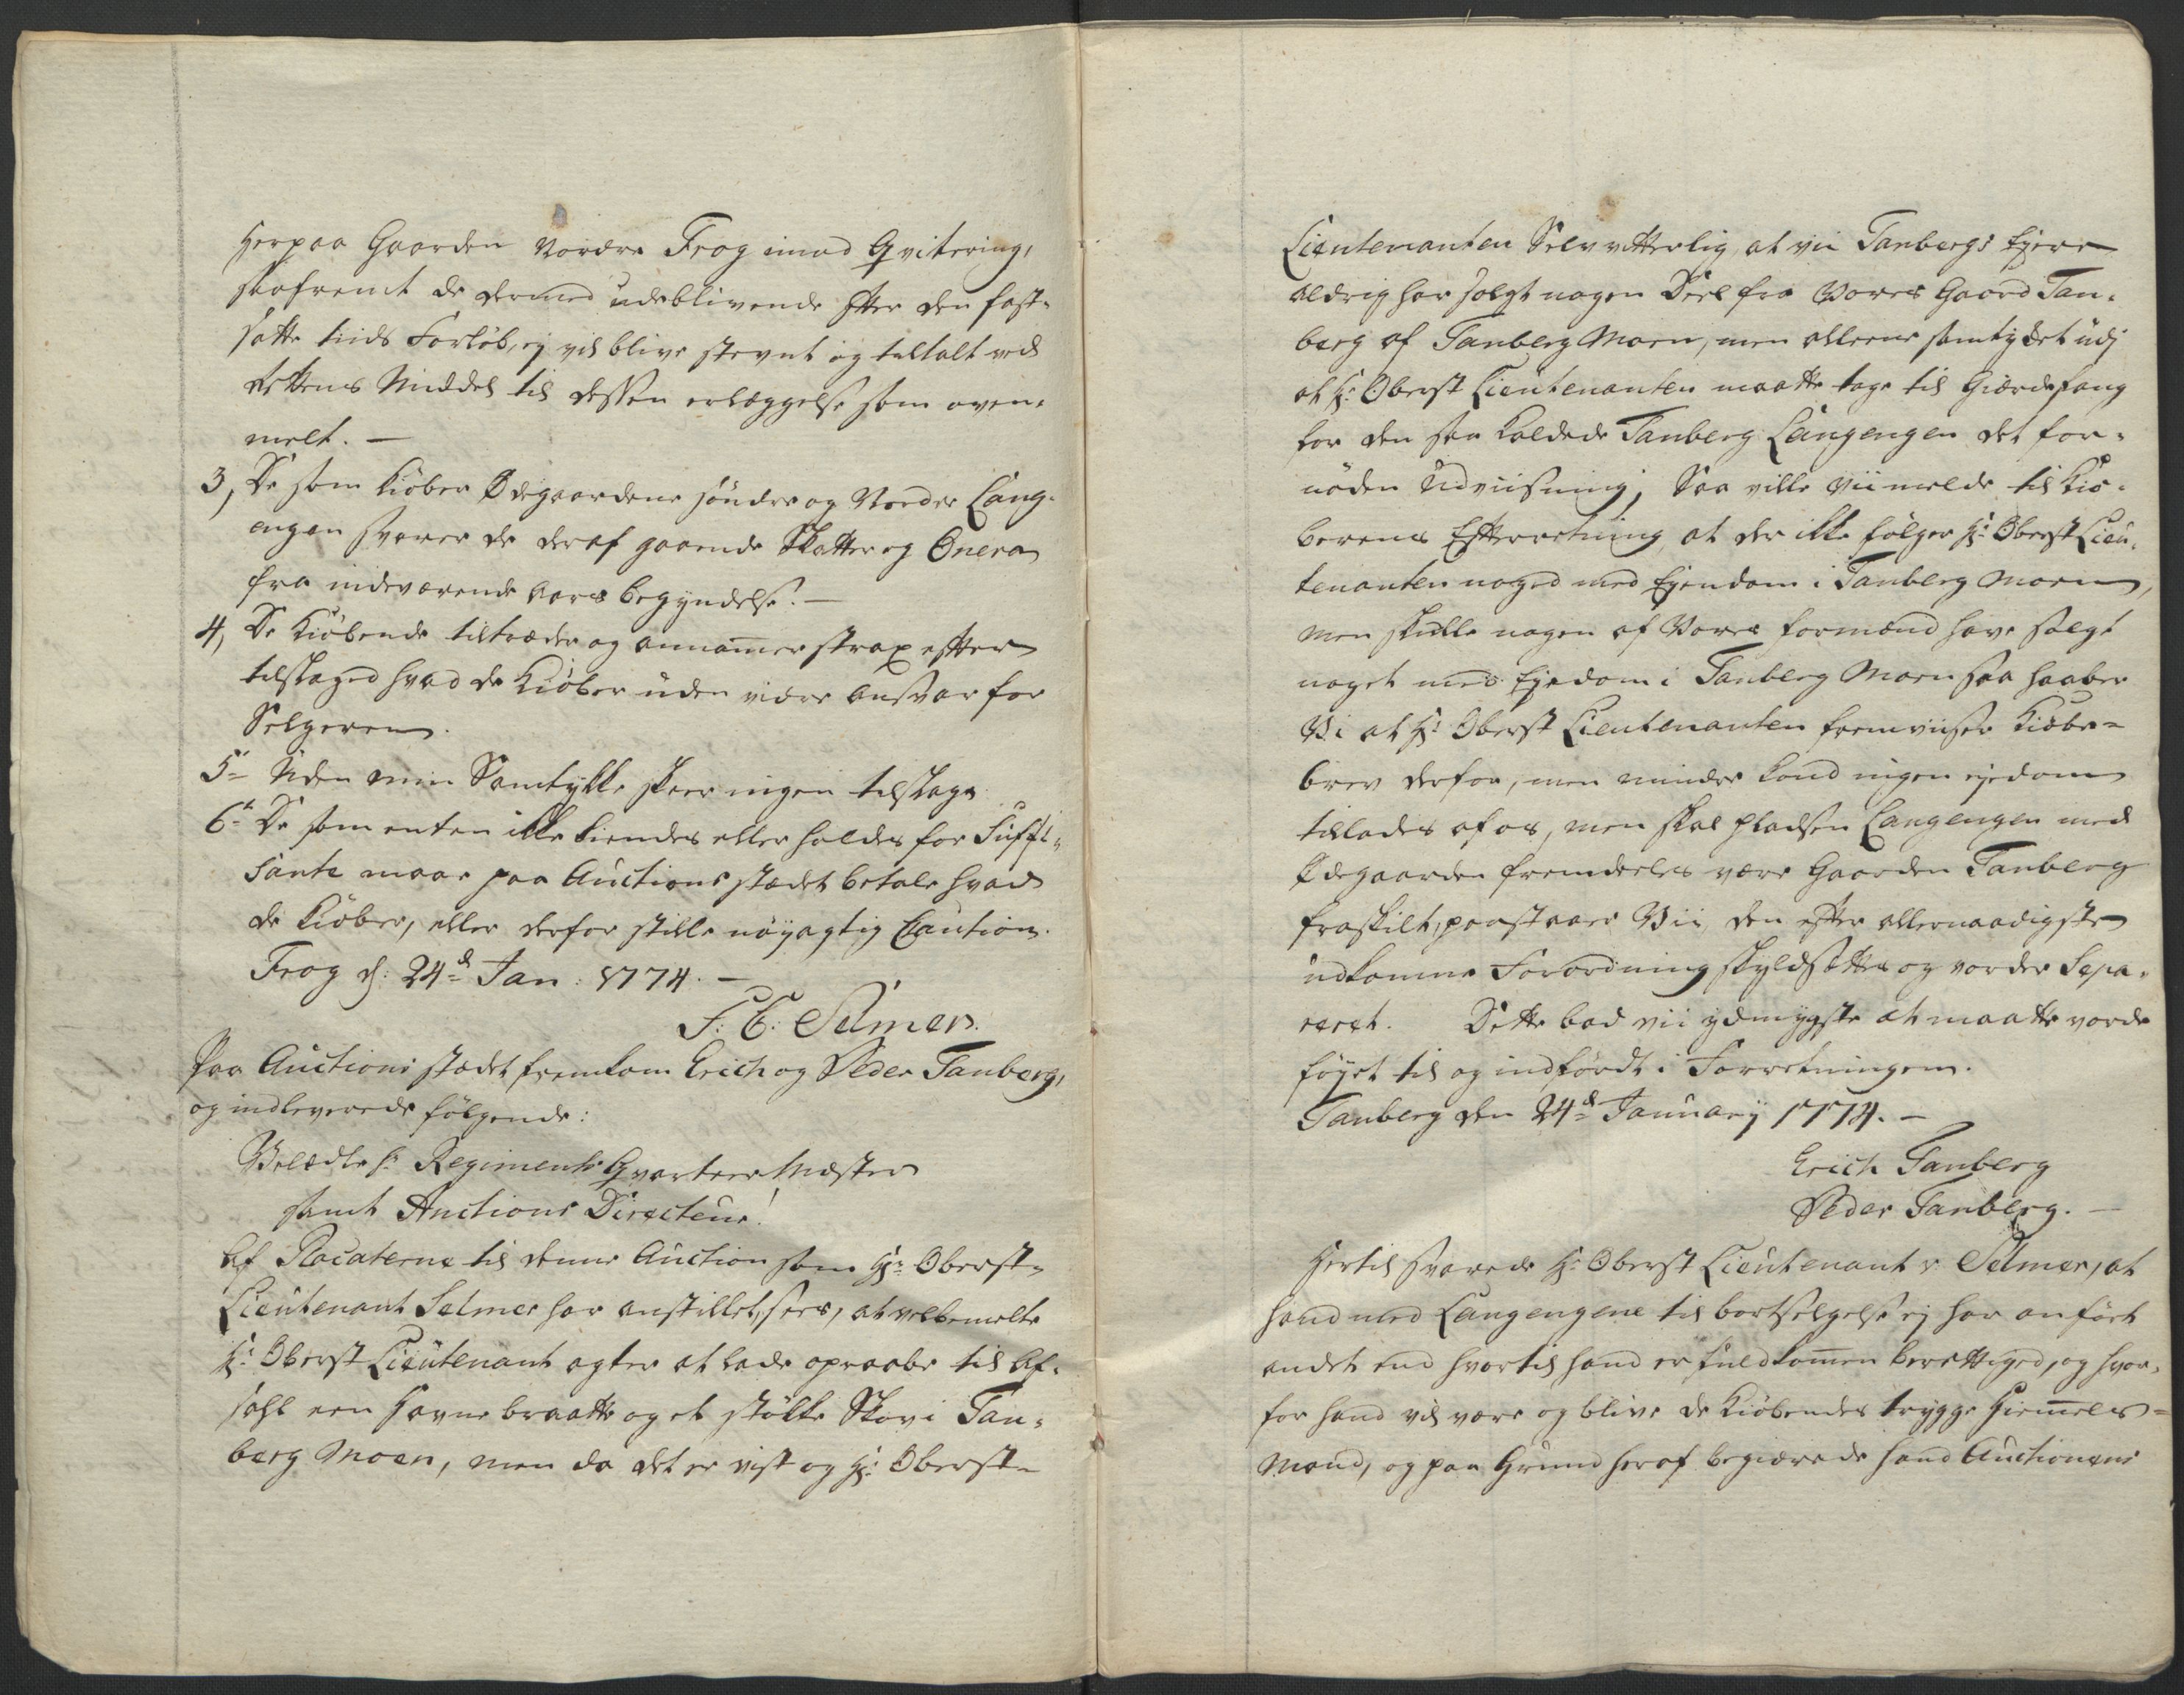 Herpaa Gaarden Nordre Frog imod Qvitering,
saafremt de dermed udeblivende Efter den fast-
satte tiids Forløb, ej vil blive stevnt og tiltalt ved
Rettens Middel til dessen erlæggelse som oven-
melt. —
3, De som kiøber Ødegaardene søndre og Nordre Lang-
engen svarer de deraf gaaende Skatter og Onera
fra indeværende Aars begyndelse. —
4, De Kiøbende tiltræder og annammer strax efter
tilslaged hvad de Kiøber uden videre ansvar for
Selgeren.
5te Uden min Samtykke skeer ingen tilslage
6te De som enten ikke kiendes eller holdes for Suffi-
sante maae paa Auctions stædet betale hvad
de kiøber, eller derfor stille nøyagtig Caution.
Frog d: 24de Jan: 1774. —
J: C: Selmer.
Paa Auctions stædet fremkom Erich og Peder Tanberg,
og indleverede følgende:
Velædle Hr Regiments Qvarteer Mæster
samt Auctions Directeur!
Af Placaterne til denne Auction som Hr: Oberst-
Lieutenant Selmer har anstillet, sees, at velbemelte
Hr: Oberst Lieutenant agter at lade opraabe til Af-
sahl een Havnebraatte og et støkke Skov i Tan-
berg Moen, men da det er vist og Hr: Oberst-
Lieutenanten Selv vitterlig, at vii Tanbergs Ejere
aldrig har solgt nogen Deel fra Vores Gaard Tan-
berg af Tanberg Moen, men alleene samtykket udj
at Hr: Oberst Lieutenanten maatte tage til Giærdefang
for den saa kaldede Tanberg Langengen det for-
nøden Udviisning, Saa ville Vii melde til Kiø-
berens Efterretning, at der ikke følger Hr: Oberst Lieu-
tenanten noged med Ejendom i Tanberg Moen,
men skulle nogen af Vores formænd have solgt
noget med Ejedom i Tanberg Moen saa haaber
Vi at Hr: Oberst Lieutenanten fremviiser Kiøbe-
brev derfor, men mindre kand ingen ejedom
tillades af os, men skal pladsen Langengen med
Ødegaarden fremdeeles være Gaarden Tanberg
fraskilt, paastaaer Vii, den efter allernaadigste
udkomne Forordning skyldsættes og vorder Sepa-
reret. Dette bad vii ydmygste at maatte vorde
føyet til og indført i Forretningen.
Tanberg den 24de January 1774. —
Erich Tanberg
Peder Tanberg. —
Hertil svarede Hr: Oberst Lieutenant v: Selmer, at
hand med Langengene til bortselgelse ej har anført
andet end hvortil hand er fuldkommen berettiged, og hvor-
for hand vil være og blive de Kiøbendes trygge Hiemmels-
Mand, og paa Grund heraf begiærede hand Auctionens